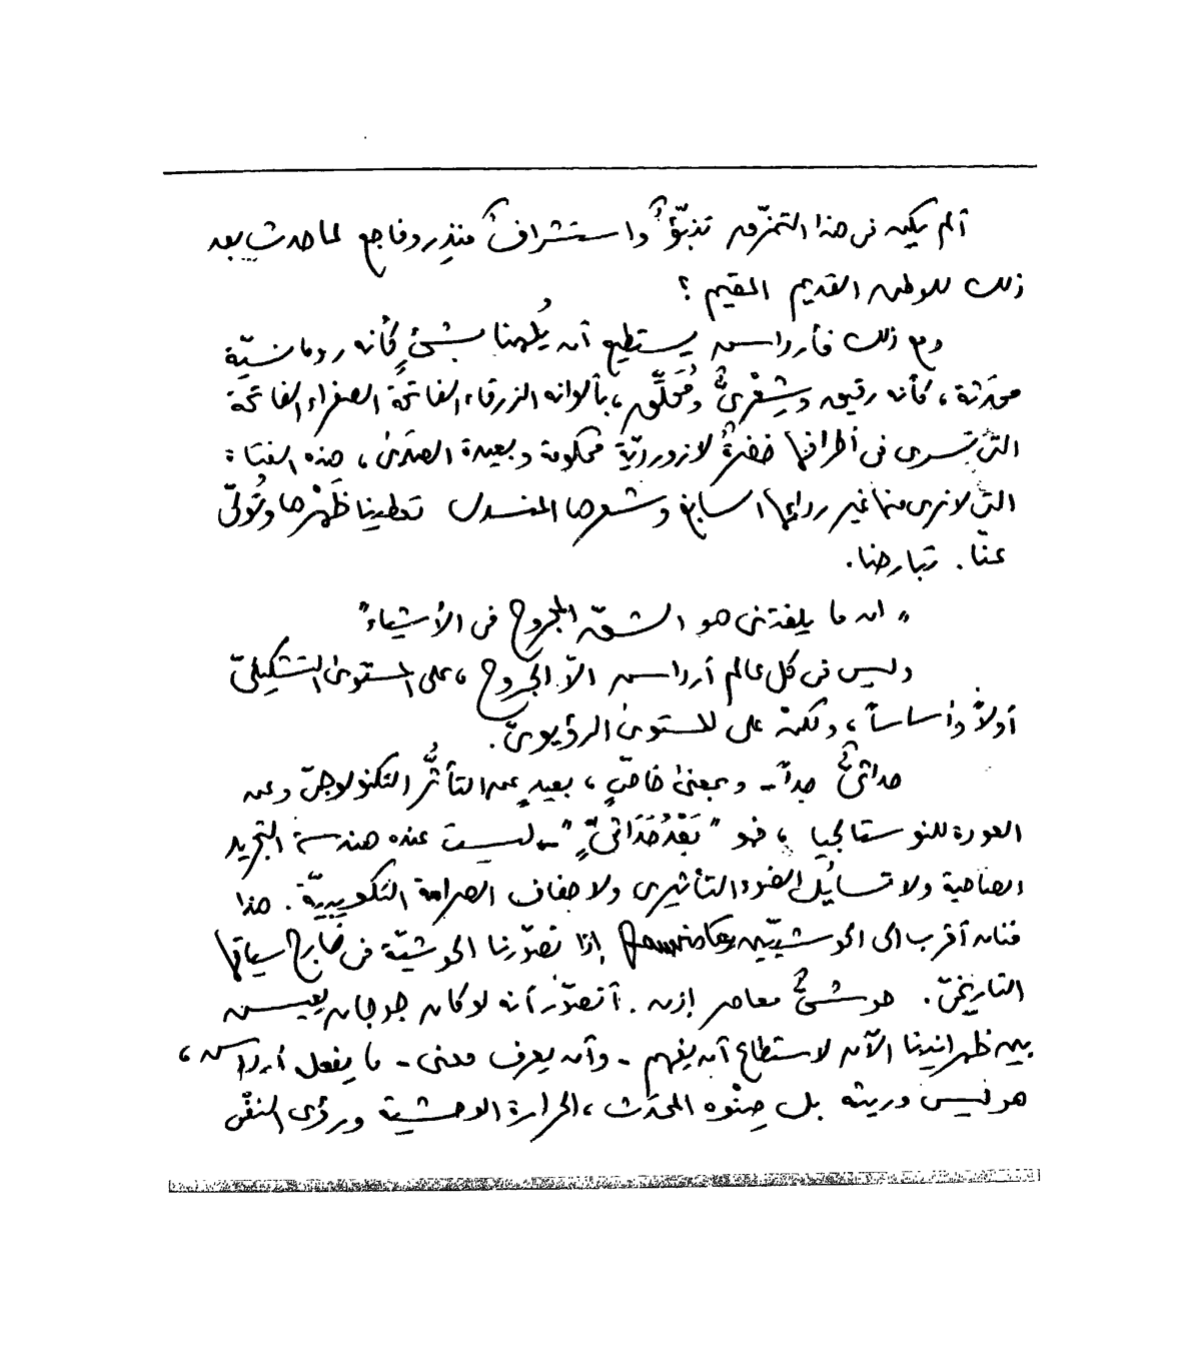 ألم يكن فى هذا التمزّق تنبّؤٌ واستشرافٌ منذِر وفاجع لما حدث بعد
ذلك للوطن القديم المقيم ؟
ومع ذلك فأرداسـ يستطيع أن يُلهمنا بشئٍ كأنه رومانسيّة
محدَثة ، كأنه رقيق وشِعْرىٌّ ومُحَلِّق ، بألوانه الزرقاء الفاتحة الصفراء الفاتحة
التى تسرى فى أطرافها خضرةٌ لازورديّة محكومة وبعيدة الصَدَى ، هذه الفتاة
التى لا نرى منها غير ردائها السابغ وشعرها المنسدل تعطينا ظَهْرها وتُولّى
عنّا . تبارحنا .
" ان ما يلفتنى هو الشقّ المجروح فى الأشياء "
وليس فى كل عالم أرداسـ الاّ الجروح ، على المستوى التشكيلىّ
أولاً وأساساً ، ولكن على المستوى الرؤيوىّ .
حداثىٌّ جداً - وبمعنىً خاصٍّ ، بعيدٍ عن التأثُّر التكنولوجىّ وعن
العودة للنوستالجيا ، فهو " بَعْدُحَدَاثىٍّ " - ليست عنده هندسة التجريد
الصاحية ولا تسايُل الضوء التأثيرى ولا جفاف الصرامة التكعيبيّة . هذا
فنان أقرب الى الحوشيّين إذا تصوّرنا الحوشيّة فى خارج سياقها
التاريخىّ . حوشىٌّ معاصر إذن . أتصوّر أنه لو كان جوجان يعيش
بين ظهرانينا الآن لاستطاع أن يفهم - وأن يعرف معنى - ما يفعل أرداسـ ،
هو ليس وريثه بل صِنْوه المحدَث ، الحرارة الوحشية ورؤى النفْس